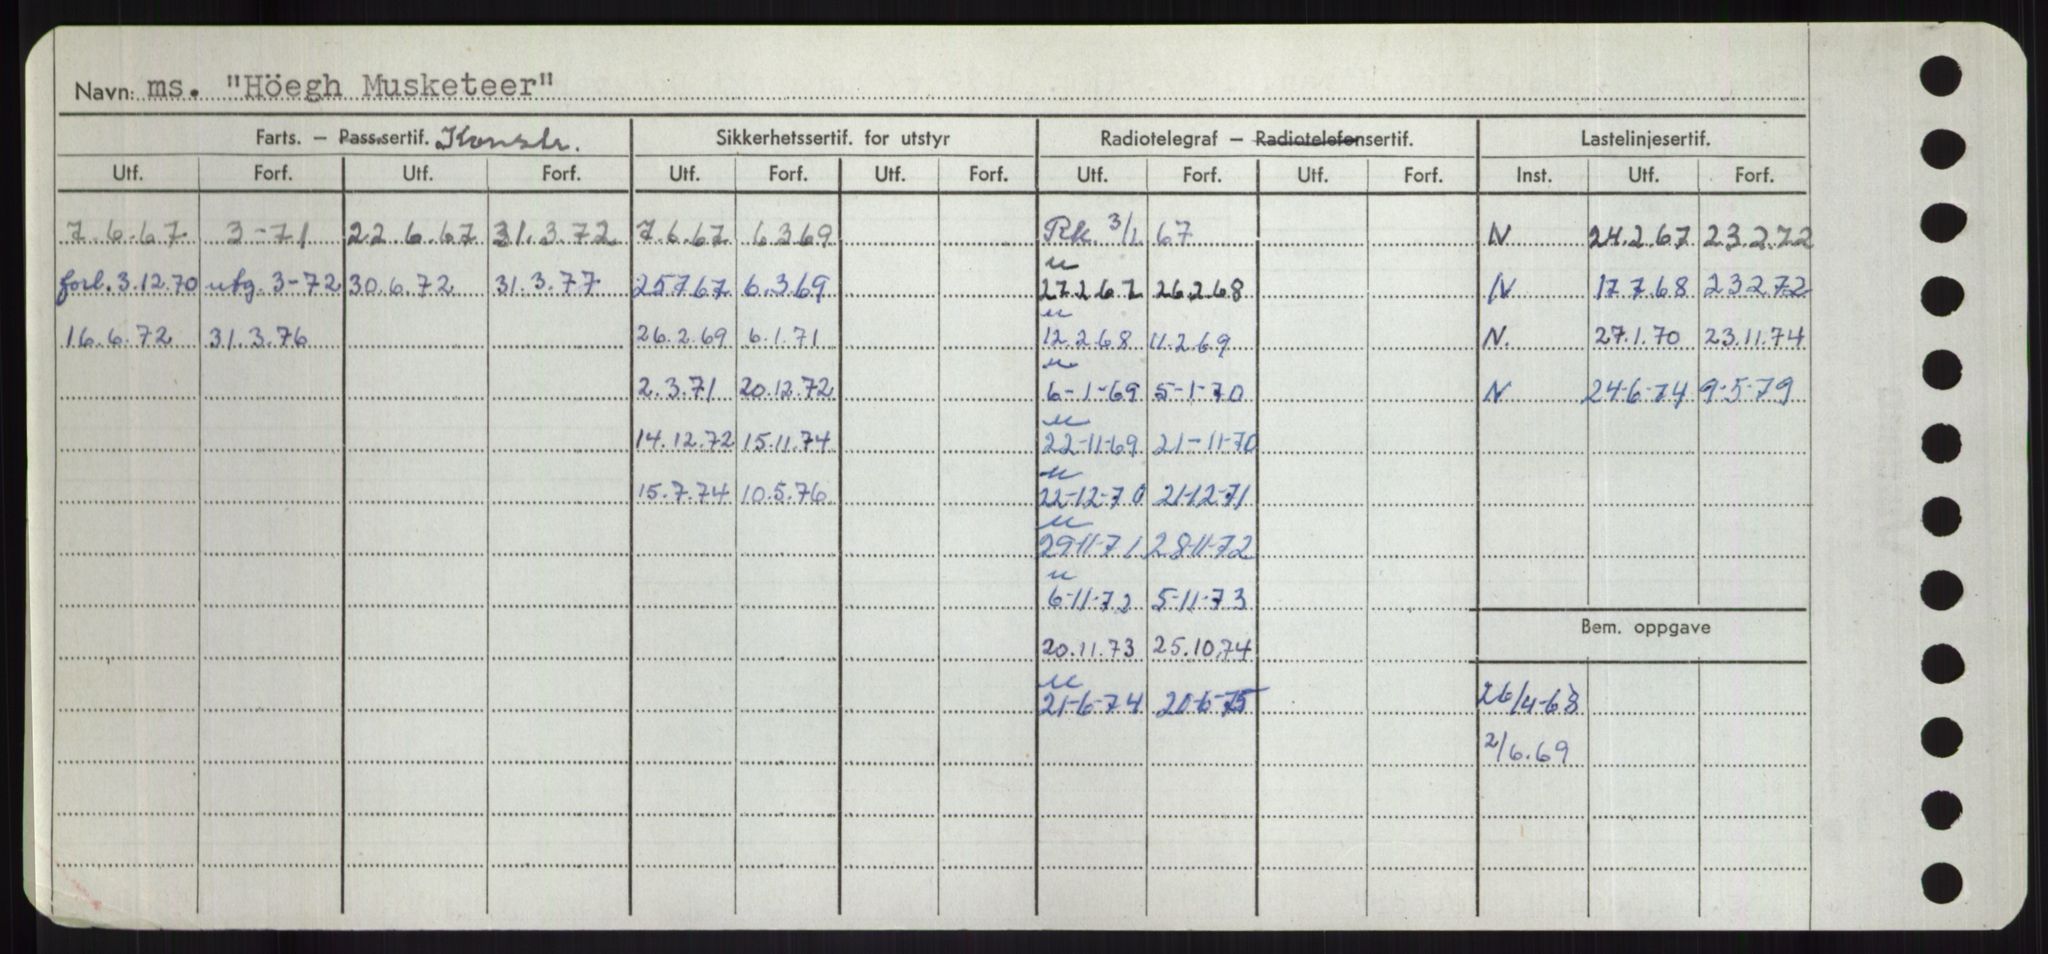 Navn: ms. "Höegh Musketeer"
Farts. — Passsertif. Konstr. Sikkerhetssertif. for utstyr Radiotelegraf — Radiotelefonsertif. Lastelinjesertif.
Utf. Forf. Utf. Forf. Utf. Forf. Utf. Forf. Utf. Forf. Utf. Forf. Inst. Utf. Forf.
7.6.67 3-71 22.6.67 31.3.72 7.6.67 6369 Rk. 3/1 67 N 24.2.67 23.2.72
forl. 3.12.70 utg. 3-72 30.6.72 31.3.77 25767 6.3.69 27.2.67 26.2.68 N 17.7.68 23272
16.6.72 31.3.76 26.2.69 6.1.71 12.2.68 11.2.69 N. 27.1.70 23.11.74
2.3.71 20.12.72 6-1-69 5-1-70 N 24-6-74 9-5-79
14.12.72 15.11.74 22-11-69 21-11-70
15.7.74 10.5.76 22-12-70 21-12-71
29-11-71 28-11-72
6-11-72 5-11-73
Bem. oppgave
20.11.73 25.10.74
21-6-74 20-6-75 26/4-68
2/6.69